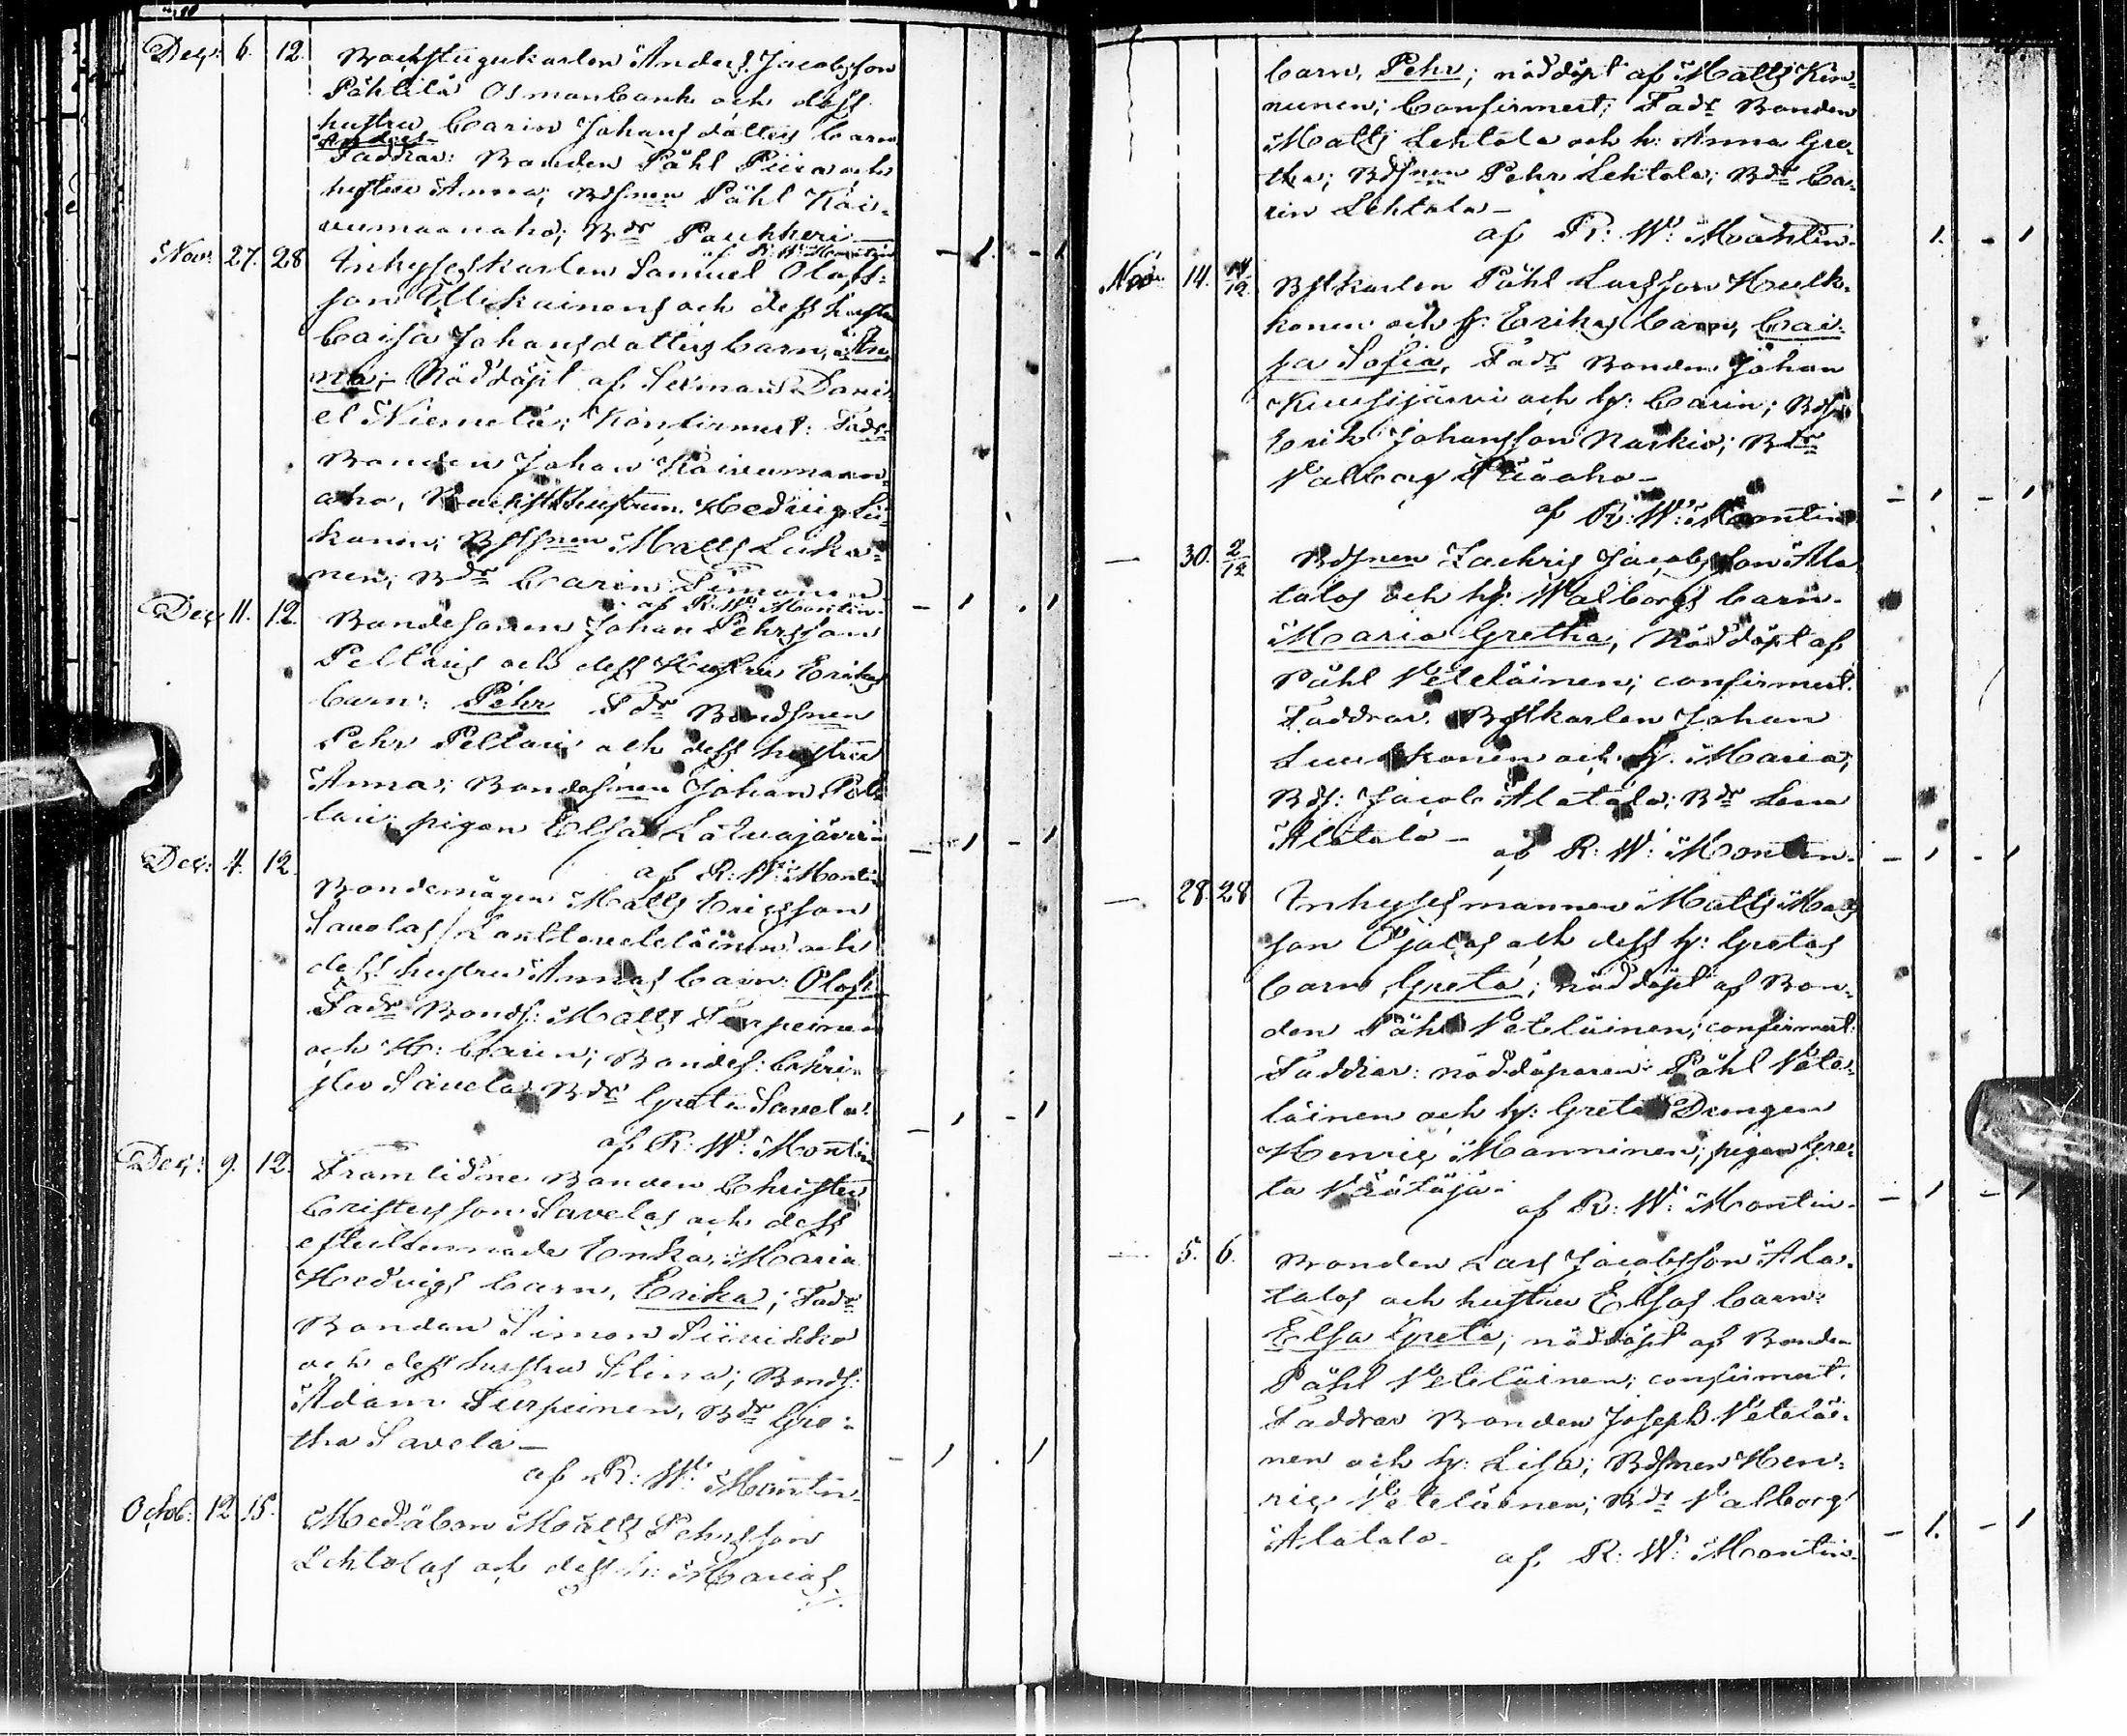 Dec: 6. 12. Backstugukarlen Anders Jacobsson
Påhlila Osmanbank och dess
hustru Carin Johansdotters barn
Anders
Faddrar: Bonden Påhl Piira och
hustru Anna; Bdsnen Påhl Kai-
vumaanaho; Bdr Paukkeri
af R: W: Montin - 1. - 1
Nov: 27. 28 Inhyseskarlen Samuel Olofs-
son Ulikainens och dess hustru
Caisa Johansdotters barn, An-
na; Nöddöpt af Sexman Dani-
el Niemelä; Konfirmert: Fadr
Bonden Johan Kaivumaan-
aho, Backsthustrun Hedvig Lu-
kanin; Bstsnen Matts Luka-
nen; Bdr Carin Timonen
af R: W: Montin - 1 . 1
Dec 11. 12. Bondesonen Johan Pehrsson
Peltaris och dess Hustru Erikas
barn: Pehr Fdr Bondsnen
Pehr Peltari och dess hustru
Anna; Bondesnen Johan Pel-
tari; pigan Elsa Latvajärvi
af R: W: Montin - 1 - 1
Dec: 4. 12. Bondemågen Matts Ericsson
Savolas och
dess hustru Annas barn: Olof.
Fadr Bonds: Matts Turpeinen
och H: Carin; Bondes: Chri-
ster Savela; Bdr Greta Savela.
af R: W: Montin - 1 - 1
Dec: 9. 12. Framlidne Bonden Christer
Cristersson Savelas och dess
efterlemnade Enka, Maria
Hedvigs barn, Erika; Fadr
Bonden Simon Siivikko
och dess hustru Stina; Bonds:
Adam Turpeinen, Bdr Gre-
tha Savela —
af R: W: Montin - 1 . 1
Octob: 12 15. Medåbon Matts Pehrsson
Lehtolas och dess h: Marias
barn, Pehr; nöddöpt af Matts Kin-
nunen; Confirmert; Fadr Bonden
Matts Lehtola och h: Anna Gre-
tha; Bdsnen Pehr Lehtola; Bdr Ca-
rin Lehtola —
af R: W: Montin. 1. - 1
Nov: 14. 14/12 Bstkarlen Påhl Larsson Hulk-
konen och h: Erikas barn, Cai-
sa Sofia, Fadr Bonden Johan
Kuusijärvi och h: Carin; Bds
Erik Johansson Karkio; Bdr
Valborg
af R: W: Montin - 1 - 1
— 30. 2/12 Bdsnen Zachris Jacobsson Ala-
talos och h: Walborgs barn.
Maria Gretha, Nöddöpt af
Påhl Veteläinen; confirmert.
Faddrar. Bstkarlen Johan
Luukkonen och h: Maria;
Bds: Jacob Alatalo; Bdr Lena
Alatalo — af R: W: Montin. - 1 - 1
— 28. 28 Inhysesmannen Matts Mats-
son Ojalas och dess h: Gretas
barn, Greta; nöddöpt af Bon-
den Påhl Veteläinen; confirmert:
Faddrar: nöddöparen Påhl Vete-
läinen och h: Greta Drengen
Henric Manninen; pigan Gre-
ta
af R: W: Montin. - 1 - 1
— 5. 6. Bonden Lars Jacobsson Ala-
talos och hustru Elsas barn:
Elsa Greta; nöddöpt af Bonden
Påhl Veteläinen; confirmert.
Faddrar Bonden Joseph Veteläi-
nen och h: Lisa; Bdsnen Hen-
ric Veteläinen; Bdr Valborg
Alatalo. af R: W: Montin. - 1. - 1